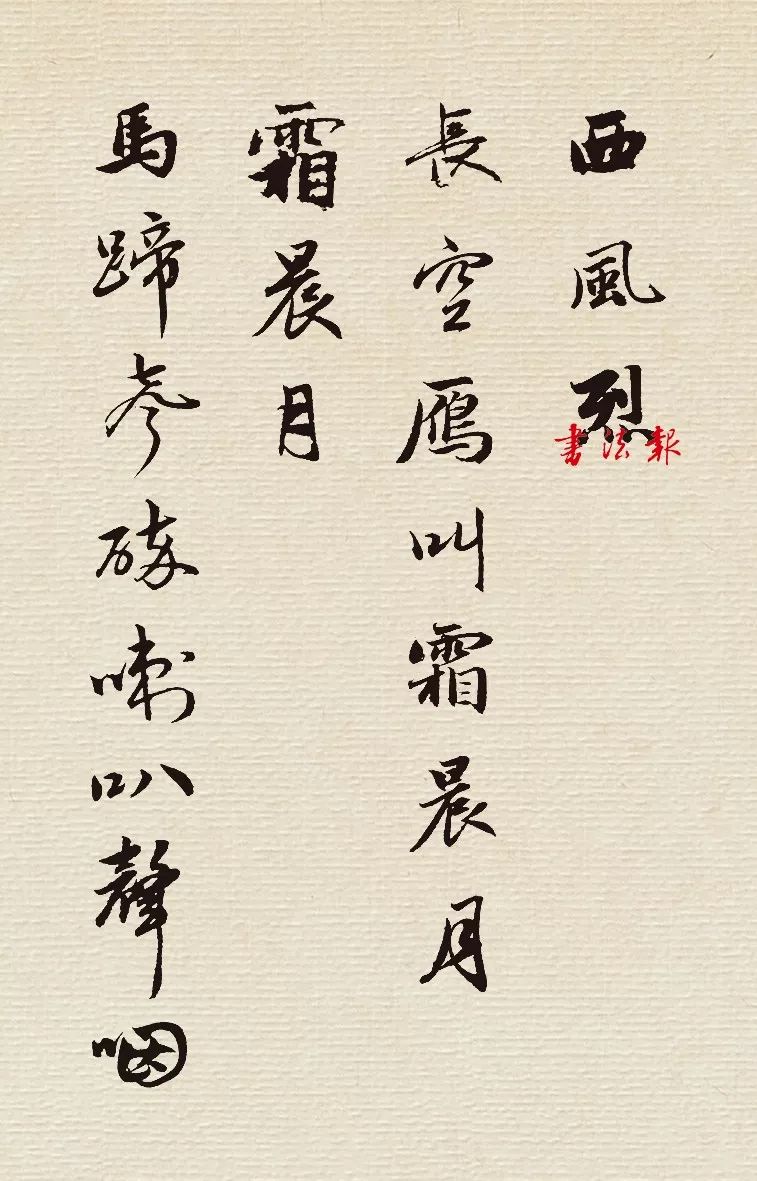 西風烈
書法報
長空雁叫霜晨月
霜晨月
馬蹄聲碎喇叭聲咽